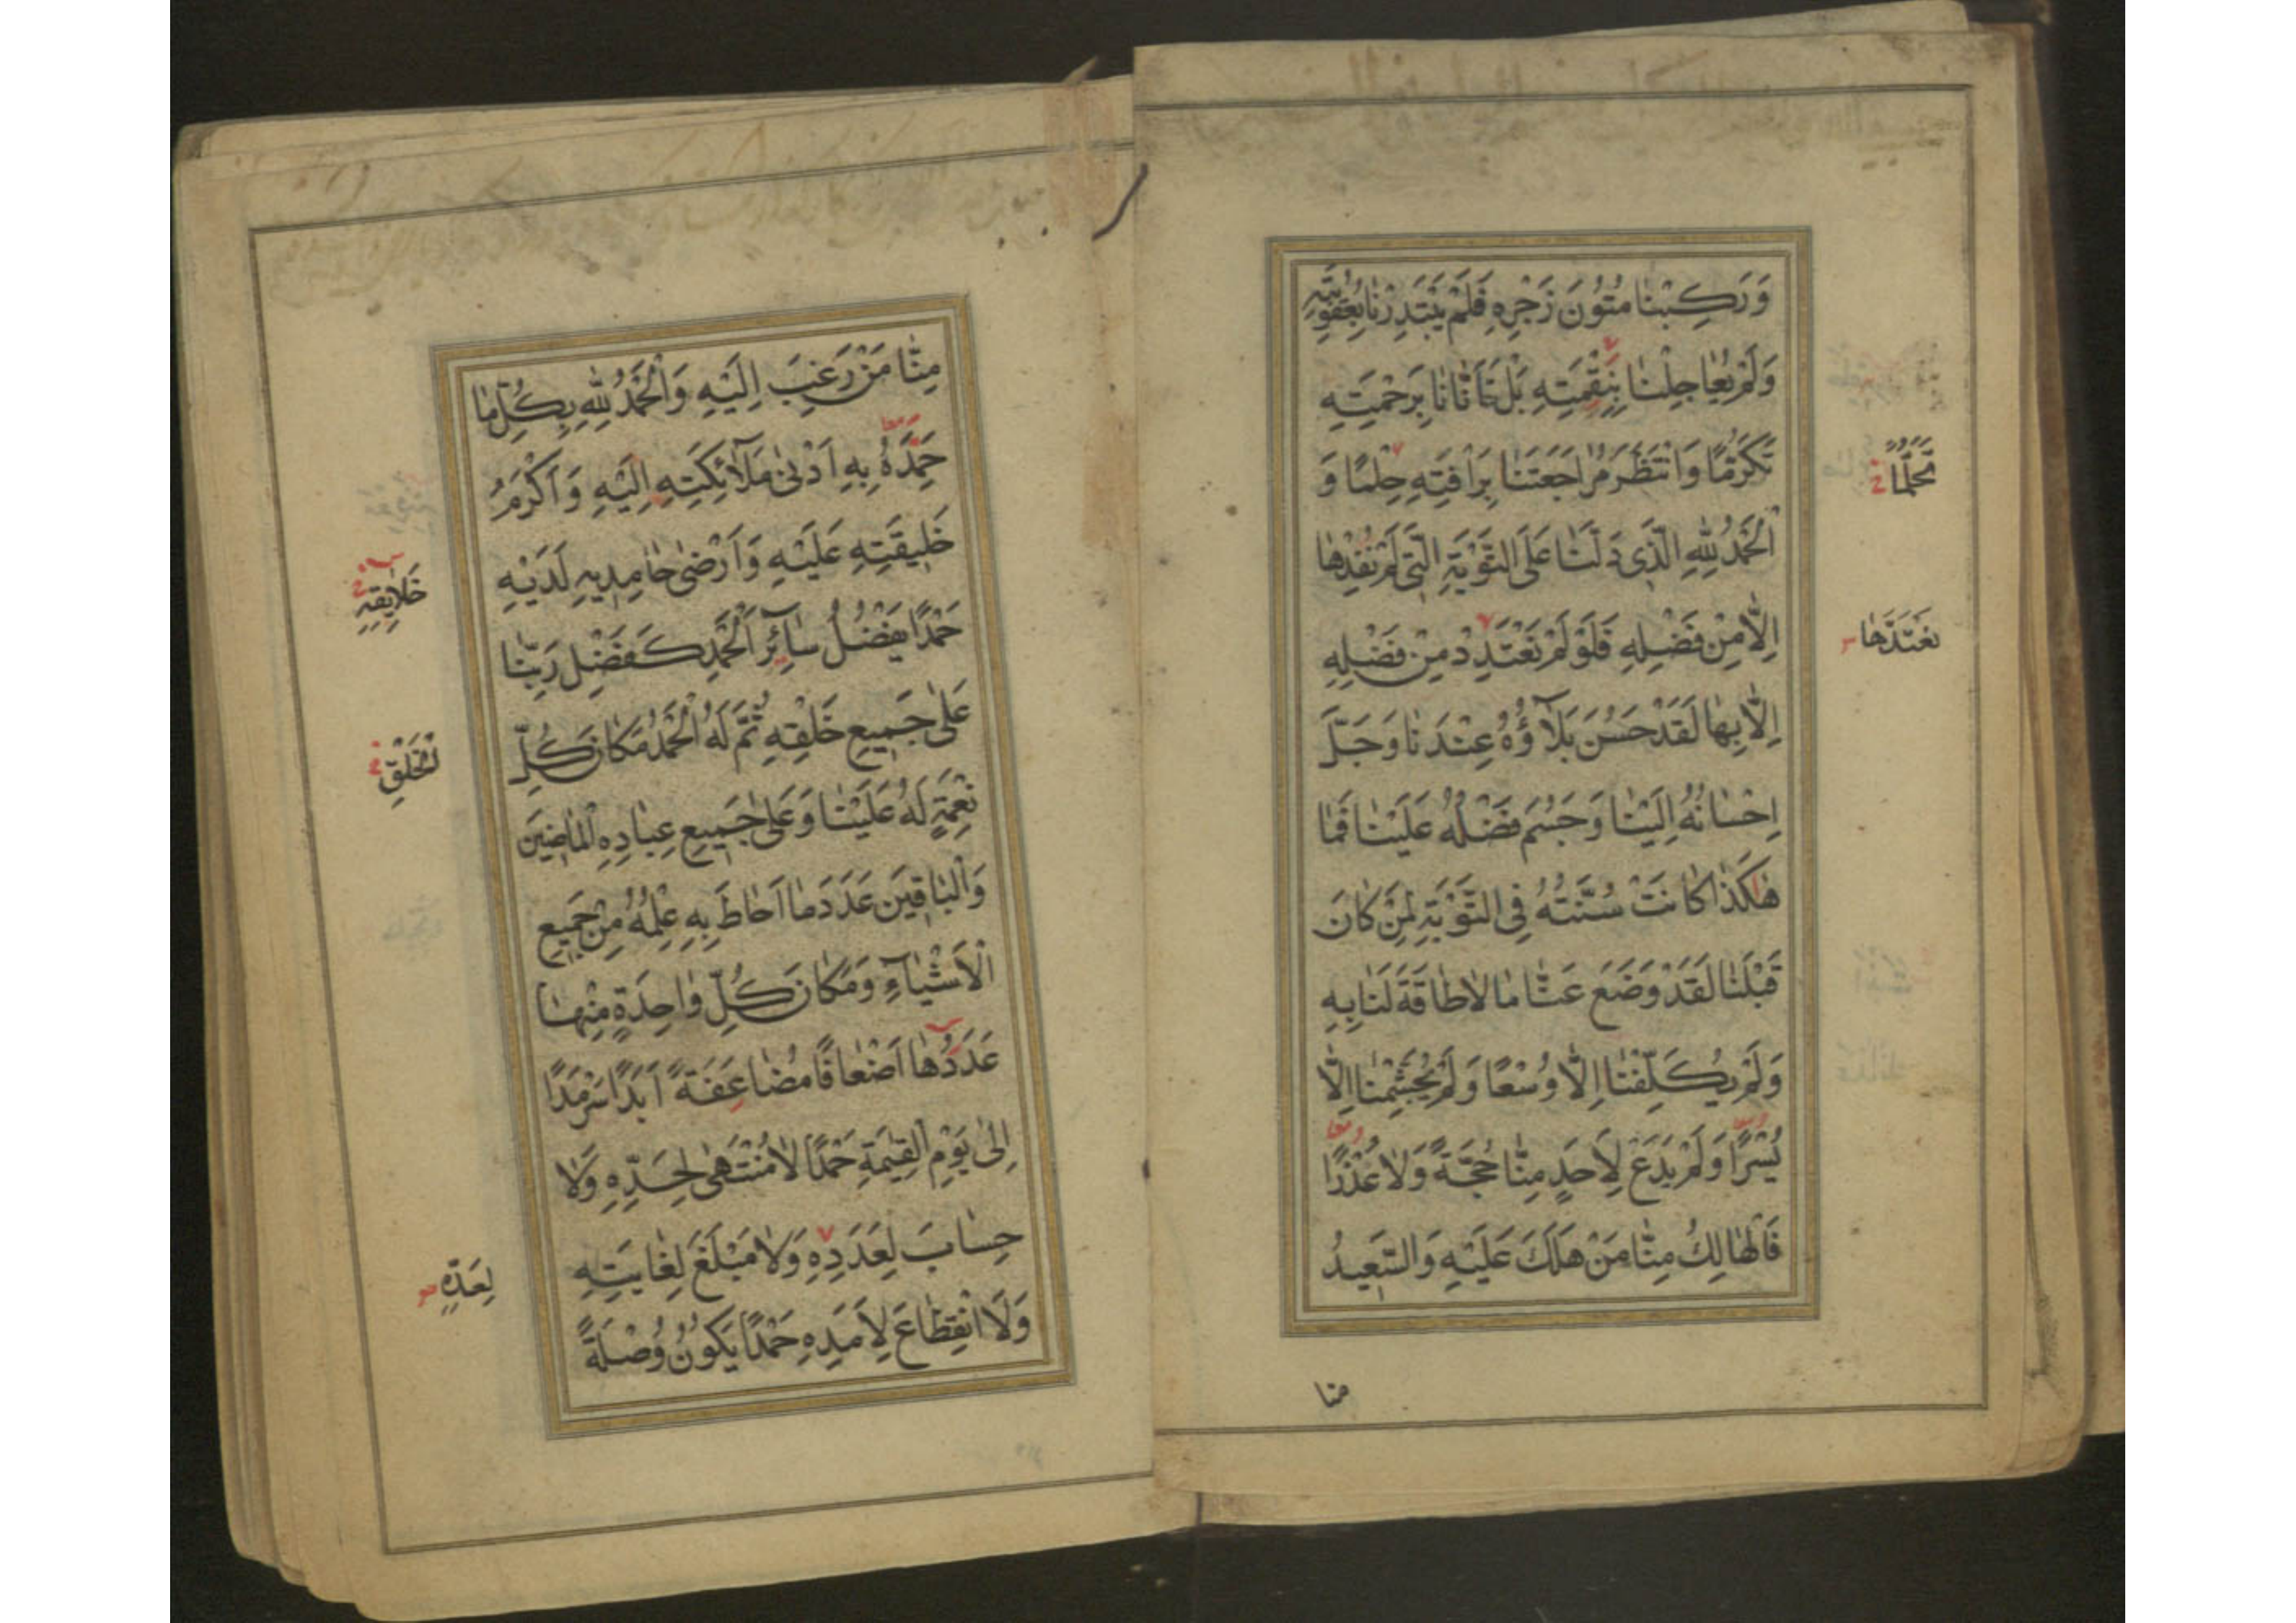 وَرَكِبْنَا مُتُونَ زَجْرِهِ فَلَمْ يَبْتَدِرْنَا بِعُقُوبَتِهِ
وَلَمْ يُعَاجِلْنَا بِنِقْمَتِهِ بَلْ تَأَنَّانَا بِرَحْمَتِهِ
تَكَرُّمًا وَانْتَظَرَ مُرَاجَعَتَنَا بِرَأْفَتِهِ حِلْمًا وَ
تَحَلُّمًا
الْحَمْدُ لِلّٰهِ الَّذِي دَلَّنَا عَلَى التَّوْبَةِ الَّتِي لَمْ نُفِدْهَا
اِلَّا مِنْ فَضْلِهِ فَلَوْ لَمْ نَعْتَدِدْ مِنْ فَضْلِهِ
نَعْتَدَّهَا
اِلَّا بِهَا لَقَدْ حَسُنَ بَلَآؤُهُ عِنْدَنَا وَجَلَّ
اِحْسَانُهُ اِلَيْنَا وَجَسُمَ فَضْلُهُ عَلَيْنَا فَمَا
هٰكَذَا كَانَتْ سُنَّتُهُ فِي التَّوْبَةِ لِمَنْ كَانَ
قَبْلَنَا لَقَدْ وَضَعَ عَنَّا مَا لَا طَاقَةَ لَنَا بِهِ
وَلَمْ يُكَلِّفْنَا اِلَّا وُسْعًا وَلَمْ يُجَشِّمْنَا اِلَّا
يُسْرًا وَلَمْ يَدَعْ لِاَحَدٍ مِنَّا حُجَّةً وَلَا عُذْرًا
فَالْهَالِكُ مِنَّا مَنْ هَلَكَ عَلَيْهِ وَالسَّعِيدُ
منا
مِنَّا مَنْ رَغِبَ اِلَيْهِ وَالْحَمْدُ لِلّٰهِ بِكُلِّ مَا
حَمِدَهُ بِهِ اَدْنٰى مَلَآئِكَتِهِ اِلَيْهِ وَاَكْرَمُ
خَلِيقَتِهِ عَلَيْهِ وَاَرْضٰى حَامِدِيهِ لَدَيْهِ
خَلَايِقِهِ
حَمْدًا يَفْضُلُ سَآئِرَ الْحَمْدِ كَفَضْلِ رَبِّنَا
عَلٰى جَمِيعِ خَلْقِهِ ثُمَّ لَهُ الْحَمْدُ مَكَانَ كُلِّ
الْخَلْقِ
نِعْمَةٍ لَهُ عَلَيْنَا وَعَلٰى جَمِيعِ عِبَادِهِ الْمَاضِينَ
وَالْبَاقِينَ عَدَدَ مَا اَحَاطَ بِهِ عِلْمُهُ مِنْ جَمِيعِ
الْاَشْيَآءِ وَمَكَانَ كُلِّ وَاحِدَةٍ مِنْهَا
عَدَدُهَا اَضْعَافًا مُضَاعَفَةً اَبَدًا سَرْمَدًا
اِلٰى يَوْمِ الْقِيٰمَةِ حَمْدًا لَا مُنْتَهٰى لِحَدِّهِ وَلَا
حِسَابَ لِعَدَدِهِ وَلَا مَبْلَغَ لِغَايَتِهِ
لِعَدِّهِ
وَلَا انْقِطَاعَ لِاَمَدِهِ حَمْدًا يَكُونُ وُصْلَةً